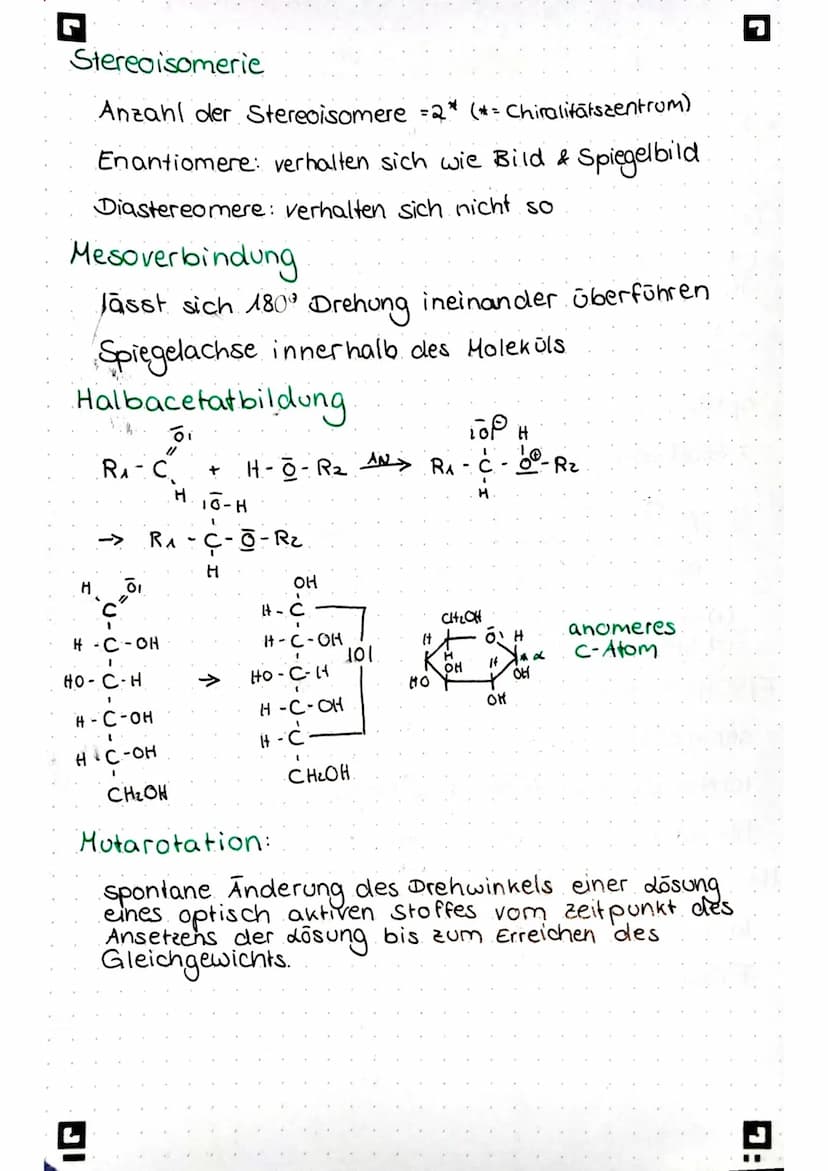 Stereoisomerie
Anzahl der Stereoisomere =2* (*= Chiralitätszentrum)
Enantiomere: verhalten sich wie Bild & Spiegelbild
Diastereomere: verhalten sich nicht so
Mesoverbindung
lässt sich 180° Drehung ineinander überführen
Spiegelachse innerhalb des Moleküls
Halbacetatbildung
|Ō|⊖ H
Ō|
R1 - C + H - Ō - R2 AN→ R1 - C - O⊕ - R2
H
H
|Ō - H
→ R1 - C - Ō - R2
H
H Ō|
C
H - C - OH
HO - C - H
H - C - OH
H - C - OH
CH2OH
→
OH
H - C
H - C - OH
|O|
HO - C - H
H - C - OH
H - C
CH2OH
CH2OH
H Ō| H
H
OH H * α
HO OH
OH
anomeres
C-Atom
Mutarotation:
spontane Änderung des Drehwinkels einer Lösung
eines optisch aktiven Stoffes vom Zeitpunkt des
Ansetzens der Lösung bis zum Erreichen des
Gleichgewichts.